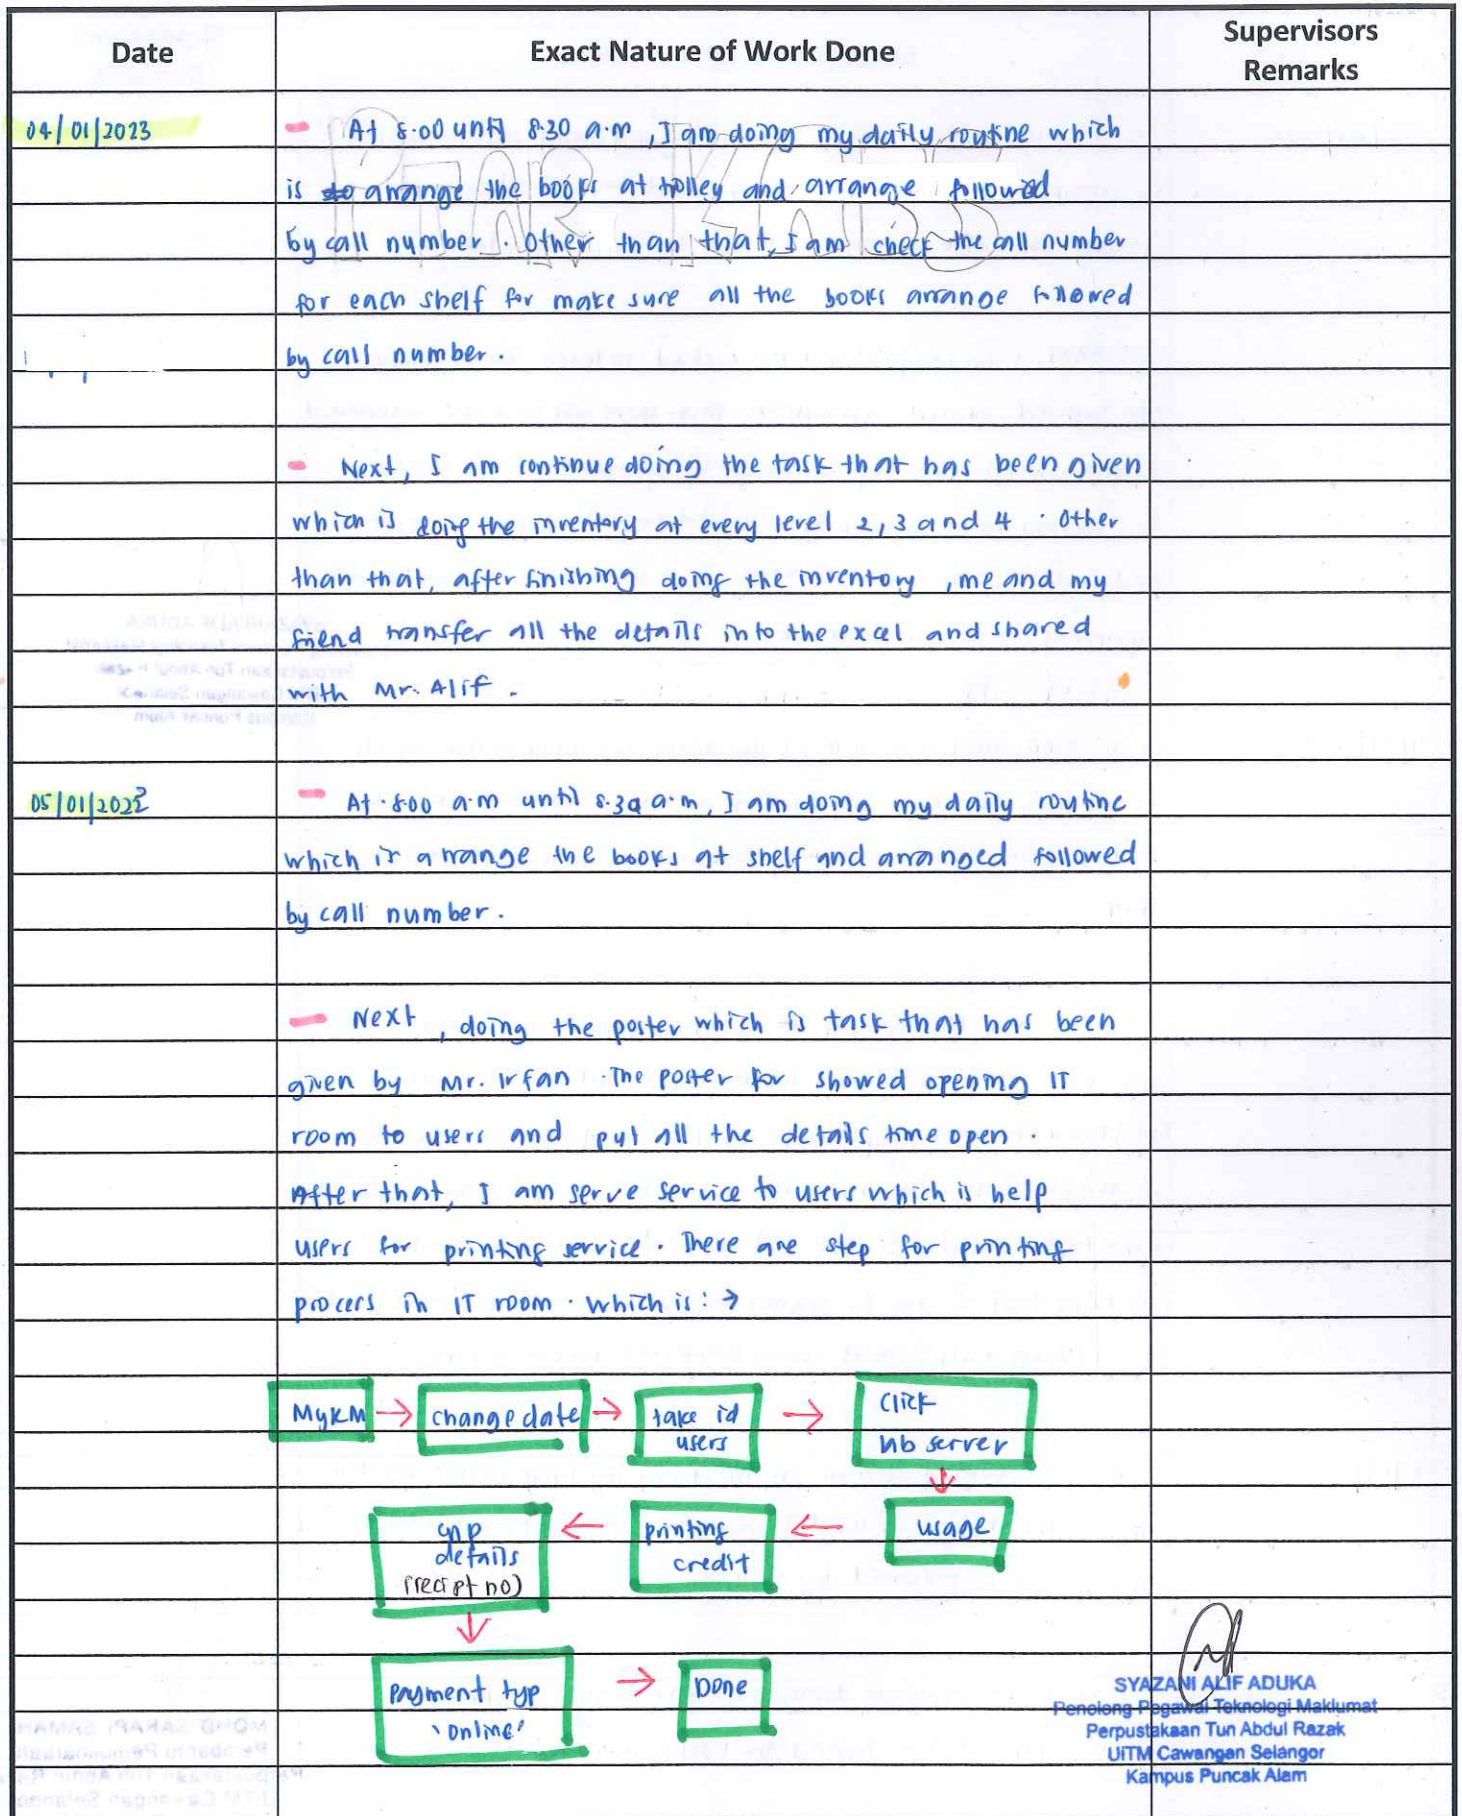 Date
Exact Nature of Work Done
Supervisors
Remarks
04/01/2023
- At 8.00 until 8.30 a.m, I am doing my daily routine which
is to arrange the books at trolley and arrange followed
by call number. Other than that, I am check the call number
for each shelf for make sure all the books arrange followed
by call number.
- Next, I am continue doing the task that has been given
which is doing the inventory at every level 2, 3 and 4. Other
than that, after finishing doing the inventory, me and my
friend transfer all the details into the excel and shared
with Mr. Alif.
05/01/2023
- At 8.00 a.m until 8.30 a.m, I am doing my daily routine
which is arrange the books at shelf and arranged followed
by call number.
- Next, doing the poster which is task that has been
given by Mr. Irfan. The poster for showed opening IT
room to users and put all the details time open.
After that, I am serve service to users which is help
users for printing service. There are step for printing
process in IT room. Which is: →
MyKM → change date → take id
users → click
server
↓
usage
← printing
credit
← details
(recipt no)
↓
Payment typ
'online'
→ Done
SYAZANI ALIF ADUKA
Penolong Pegawai Teknologi Maklumat
Perpustakaan Tun Abdul Razak
UiTM Cawangan Selangor
Kampus Puncak Alam